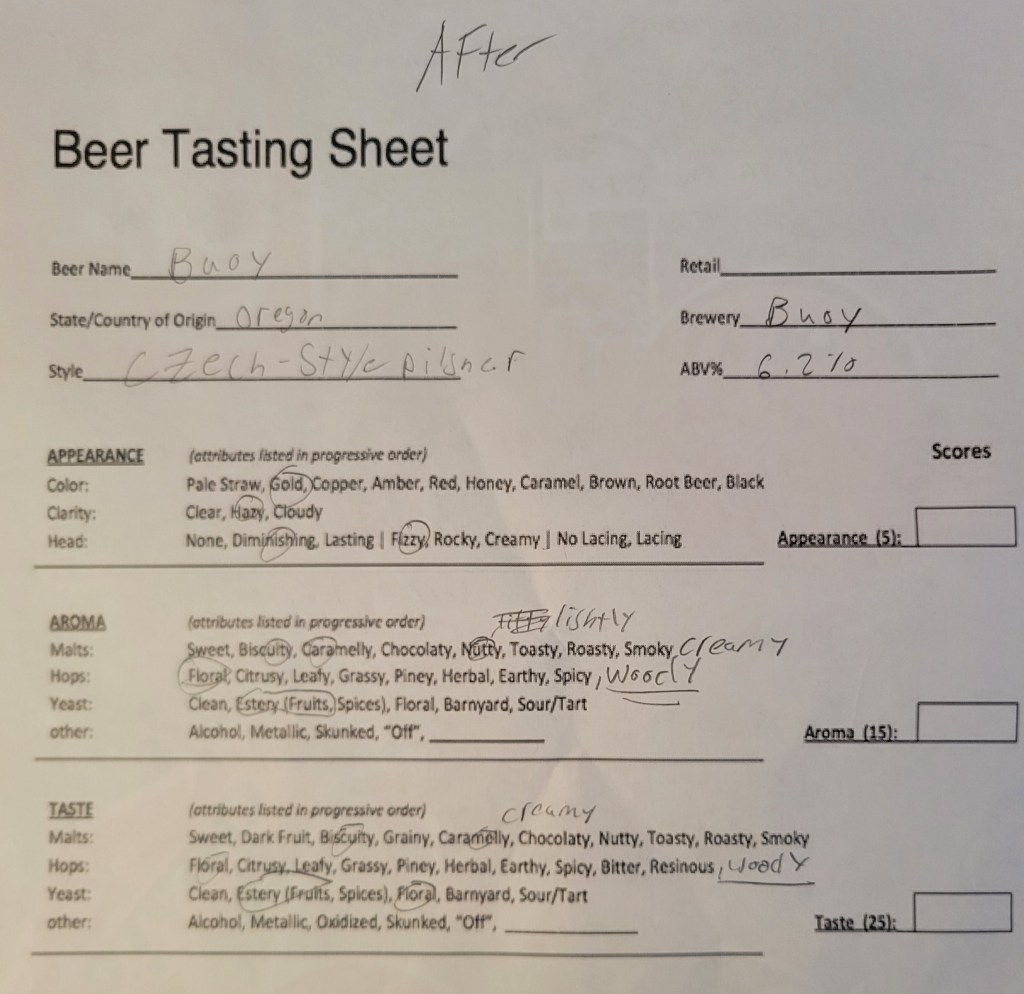 AFter
Beer Tasting Sheet
Beer Name Buoy
Retail
State/Country of Origin Oregon
Brewery Buoy
Style Czech-Style pilsner
ABV% 6.2%
APPEARANCE (attributes listed in progressive order) Scores
Color: Pale Straw, Gold, Copper, Amber, Red, Honey, Caramel, Brown, Root Beer, Black
Clarity: Clear, Hazy, Cloudy
Head: None, Diminishing, Lasting | Fizzy, Rocky, Creamy | No Lacing, Lacing Appearance (5):
lightly
AROMA (attributes listed in progressive order)
Malts: Sweet, Biscuity, Caramelly, Chocolaty, Nutty, Toasty, Roasty, Smoky creamy
Hops: Floral, Citrusy, Leafy, Grassy, Piney, Herbal, Earthy, Spicy, Woody
Yeast: Clean, Estery (Fruits, Spices), Floral, Barnyard, Sour/Tart
other: Alcohol, Metallic, Skunked, "Off", Aroma (15):
creamy
TASTE (attributes listed in progressive order)
Malts: Sweet, Dark Fruit, Biscuity, Grainy, Caramelly, Chocolaty, Nutty, Toasty, Roasty, Smoky
Hops: Floral, Citrusy, Leafy, Grassy, Piney, Herbal, Earthy, Spicy, Bitter, Resinous, woody
Yeast: Clean, Estery (Fruits, Spices), Floral, Barnyard, Sour/Tart
other: Alcohol, Metallic, Oxidized, Skunked, "Off", Taste (25):